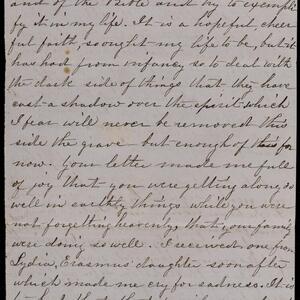 and of the Bible and try to exempli
fy it in my life. It is a hopeful, cheer
ful faith, so ought my life to be, but it
has had from infancy so to deal with
the dark side of things that they have
cast a shadow over the spirit which
I fear will never be removed this
side the grave - but enough of this for
now. Your letter made me full
of joy that you were getting along so
well in earthly things while you were
not forgetting heavenly, that your family
were doing so well. I received one from
Lydia, Erasmus' daughter soon after
which made me cry for sadness. It is